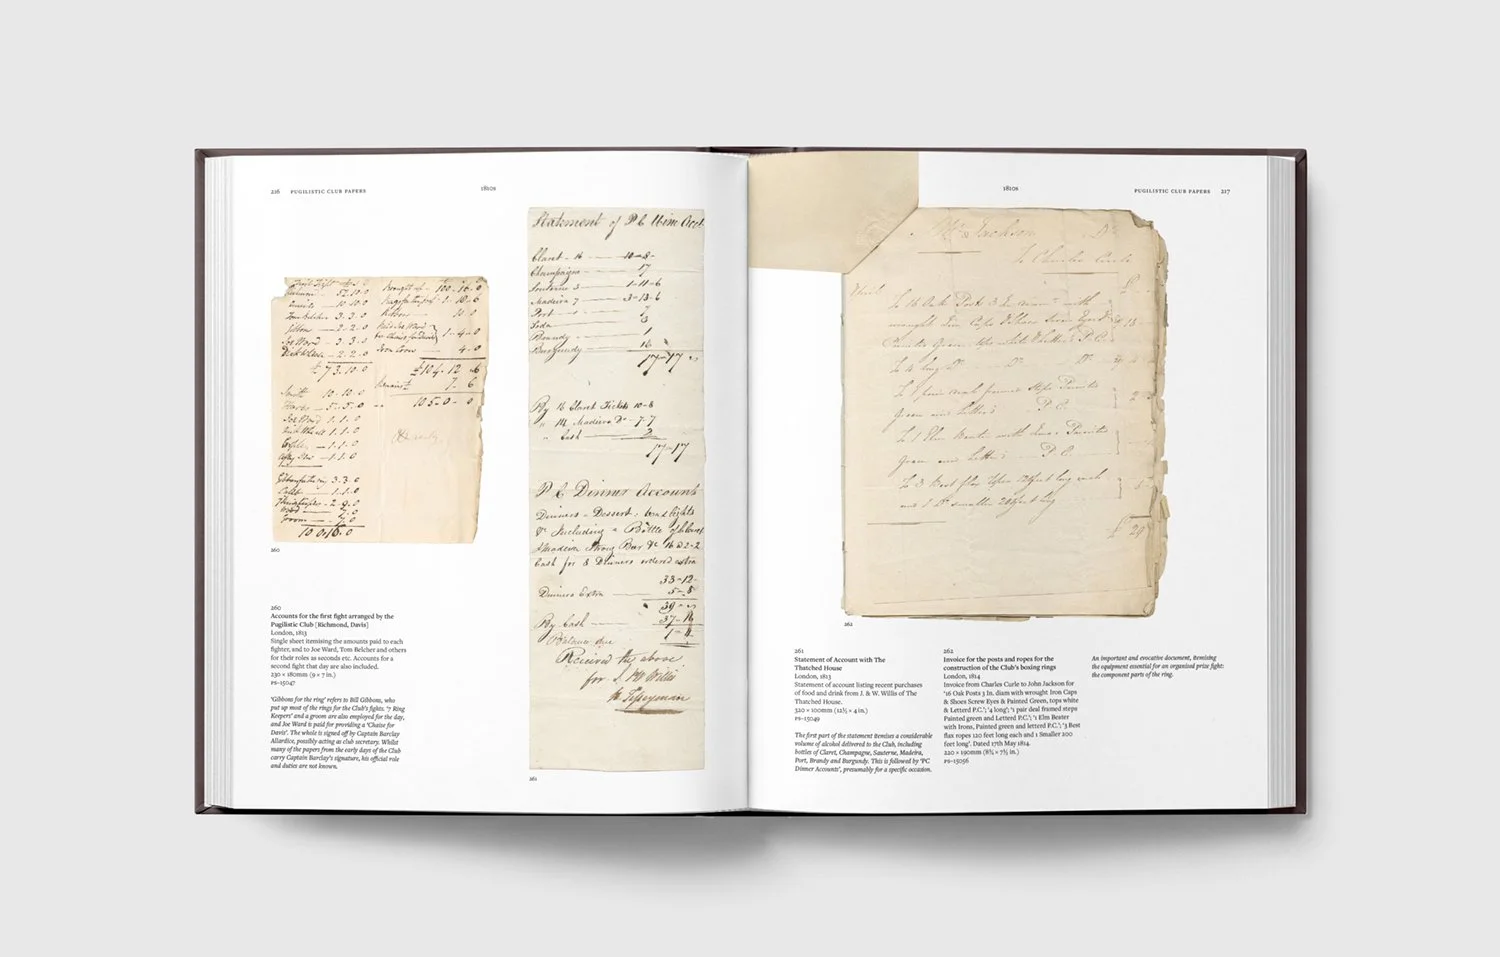 216 PUGILISTIC CLUB PAPERS
1810s
1810s
PUGILISTIC CLUB PAPERS 217
Brought up - 100-16-0
Ribbon 10.0
Tom Belcher 3.3.0
Gibbon - 2-2.0
Joe Ward - 3.3.0
- 2-2.0
£73.10.0
4-0
£104.12.6
7-6
105-0-0
Smith 10.10.0
- 5-5.0
Joe Ward 1.1.0
1.1.0
-1.1.0
-1.1.0
3.3.0
Caleb - 1.1.0
Groom
100.16.0
260
Statement of P C Wine Acct
Claret - 16 10-8-
Champagne - 17
Sauterne 3 1-11-6
Madeira 7 - 3-13-6
Port
Soda 3
Brandy 1
Burgundy 16
17-17
By 16 Claret Tickets 10-8
" 14 Madeira Do 7-7
" Cash 2
17-17
P C Dinner Account
Dinners - Dessert:
&c Including a Bottle of Claret
Madeira Strong Beer &c 16 @ 2-2
Cash for 8 Dinners ordered extra
33-12-
Dinners Extra 5-8
39
By Cash 37-16
Balance due
Received the above
for J. W Willis
261
Mr Jackson Dr
To Charles Curle
To 16 Oak Posts 3 In with
wrought Iron Caps & Shoes Screw Eyes
Painted Green, tops Letterd P.C.
To 4 long Do Do Do
To 1 pair deal framed Steps Painted
Green and Letterd P.C.
To 1 Elm Beater with Irons Painted
Green and Letterd P.C.
To 3 Best flax Ropes 120feet long each
and 1 Do smaller 200feet long
262
260
Accounts for the first fight arranged by the
Pugilistic Club [Richmond, Davis]
London, 1813
Single sheet itemising the amounts paid to each
fighter, and to Joe Ward, Tom Belcher and others
for their roles as seconds etc. Accounts for a
second fight that day are also included.
230 × 180mm (9 × 7 in.)
PS-15047
'Gibbons for the ring' refers to Bill Gibbons, who
put up most of the rings for the Club's fights. '7 Ring
Keepers' and a groom are also employed for the day,
and Joe Ward is paid for providing a 'Chaise for
Davis'. The whole is signed off by Captain Barclay
Allardice, possibly acting as club secretary. Whilst
many of the papers from the early days of the Club
carry Captain Barclay's signature, his official role
and duties are not known.
261
Statement of Account with The
Thatched House
London, 1813
Statement of account listing recent purchases
of food and drink from J. & W. Willis of The
Thatched House.
520 × 100mm (12½ × 4 in.)
PS-15049
The first part of the statement itemises a considerable
volume of alcohol delivered to the Club, including
bottles of Claret, Champagne, Sauterne, Madeira,
Port, Brandy and Burgundy. This is followed by 'PC
Dinner Accounts', presumably for a specific occasion.
262
Invoice for the posts and ropes for the
construction of the Club's boxing rings
London, 1814
Invoice from Charles Curle to John Jackson for
'16 Oak Posts 3 In. diam with wrought Iron Caps
& Shoes Screw Eyes & Painted Green, tops white
& Letterd P.C.'; '4 long'; '1 pair deal framed steps
Painted green and Letterd P.C.'; '1 Elm Beater
with Irons, Painted green and letterd P.C.'; '3 Best
flax ropes 120 feet long each and 1 Smaller 200
feet long'. Dated 17th May 1814.
220 × 190mm (8¾ × 7½ in.)
PS-15056
An important and evocative document, itemising
the equipment essential for an organised prize fight:
the component parts of the ring.